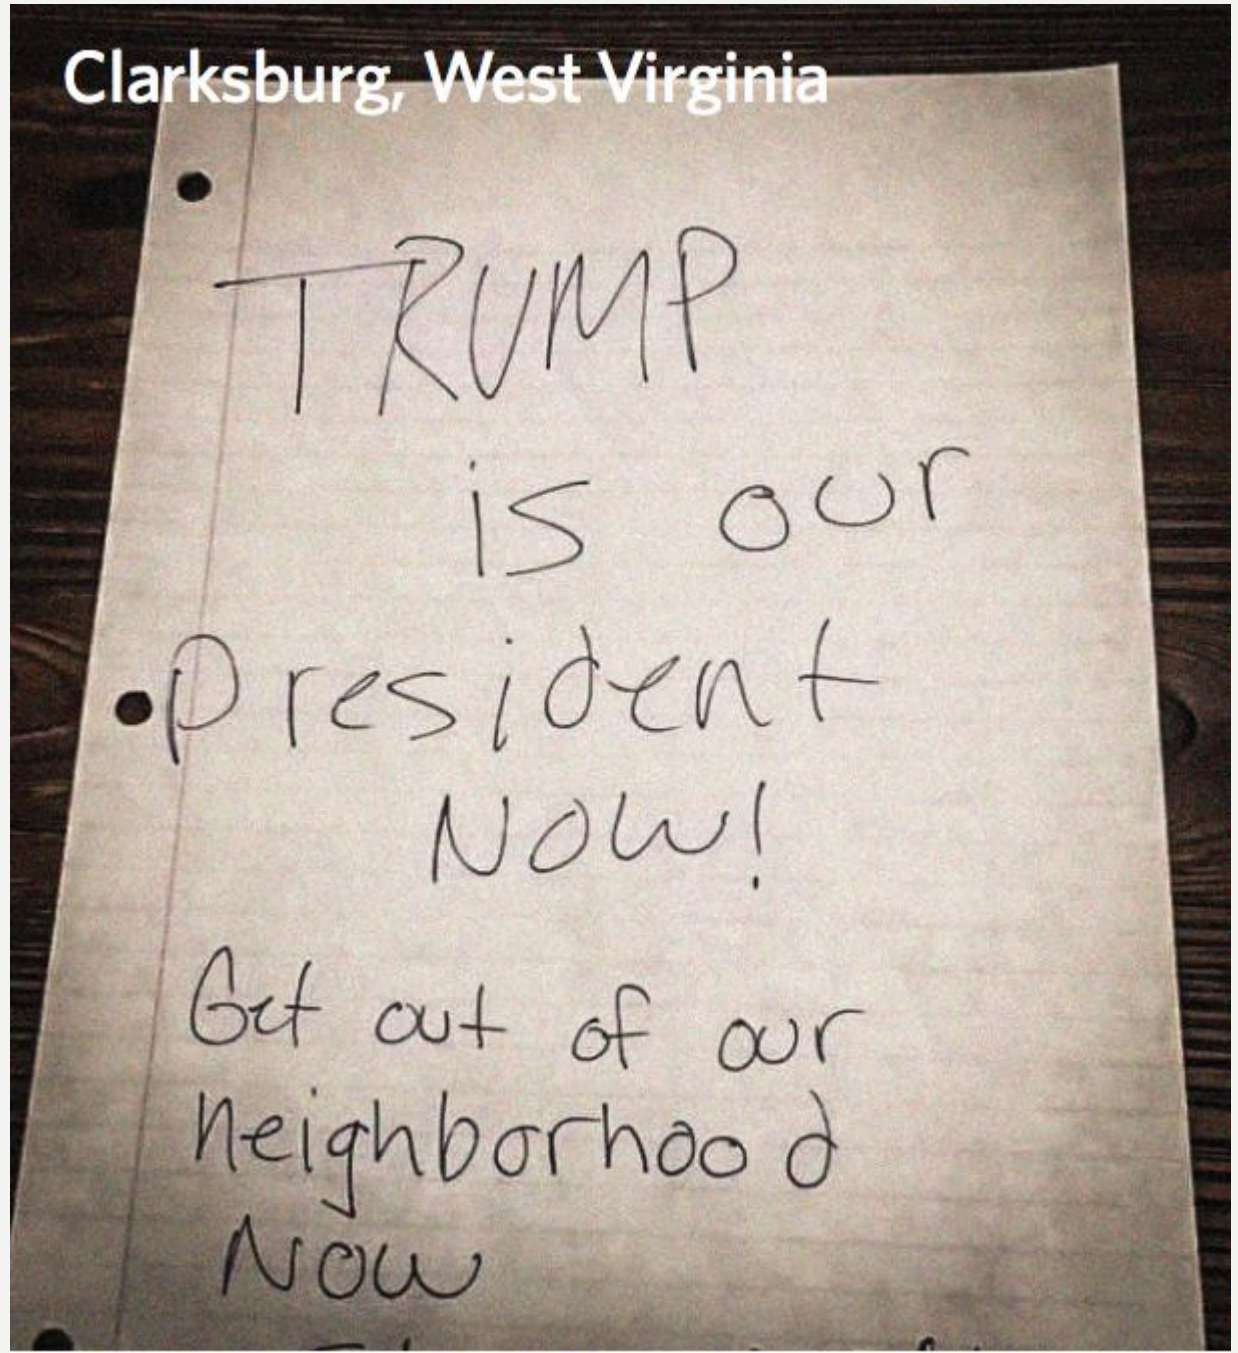 Clarksburg, West Virginia
TRUMP
is our
President
NOW!
Get out of our
neighborhood
NOW